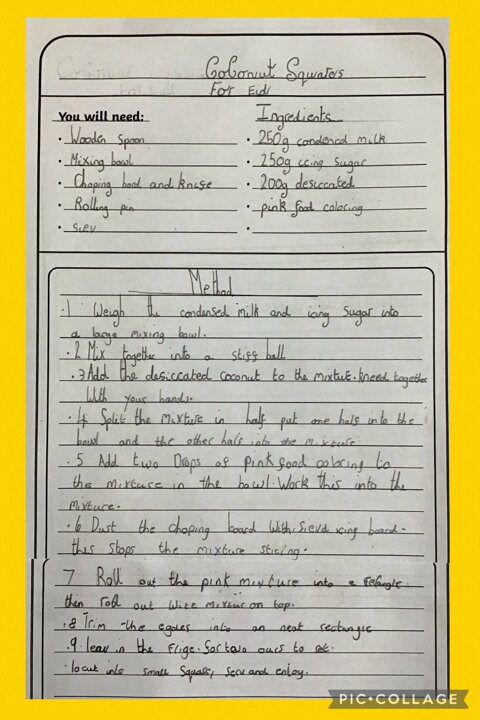 Coconut Squares
For Eid
You will need:
Ingredients
• Wooden Spoon
• 250g condenced milk
• Mixing bowl
• 250g icing sugar
• Choping bord and knife
• 200g desiccated
• Rolling pin
• pink food coloring
• siev
•
Method
•1 Weigh the condensed milk and icing sugar into
a large mixing bowl.
•2 Mix together into a stiff ball
•3 Add the desiccated coconut to the mixture. kneed together
With your hands.
•4 Split the mixture in half put one half into the
bowl and the other half into the mixture
•5 Add two Drops of pink food coloring to
the mixture in the bowl. Work this into the
mixture.
•6 Dust the choping board with sievd icing board.
this stops the mixture sticing.
7 Roll out the pink mixture into a
then roll out wite mixtur on top.
•8 Trim the egdes into an neat rectangle
•9 leav in the frige. for two ours to set.
•10 cut into small Square, serv and enjoy.
PIC•COLLAGE